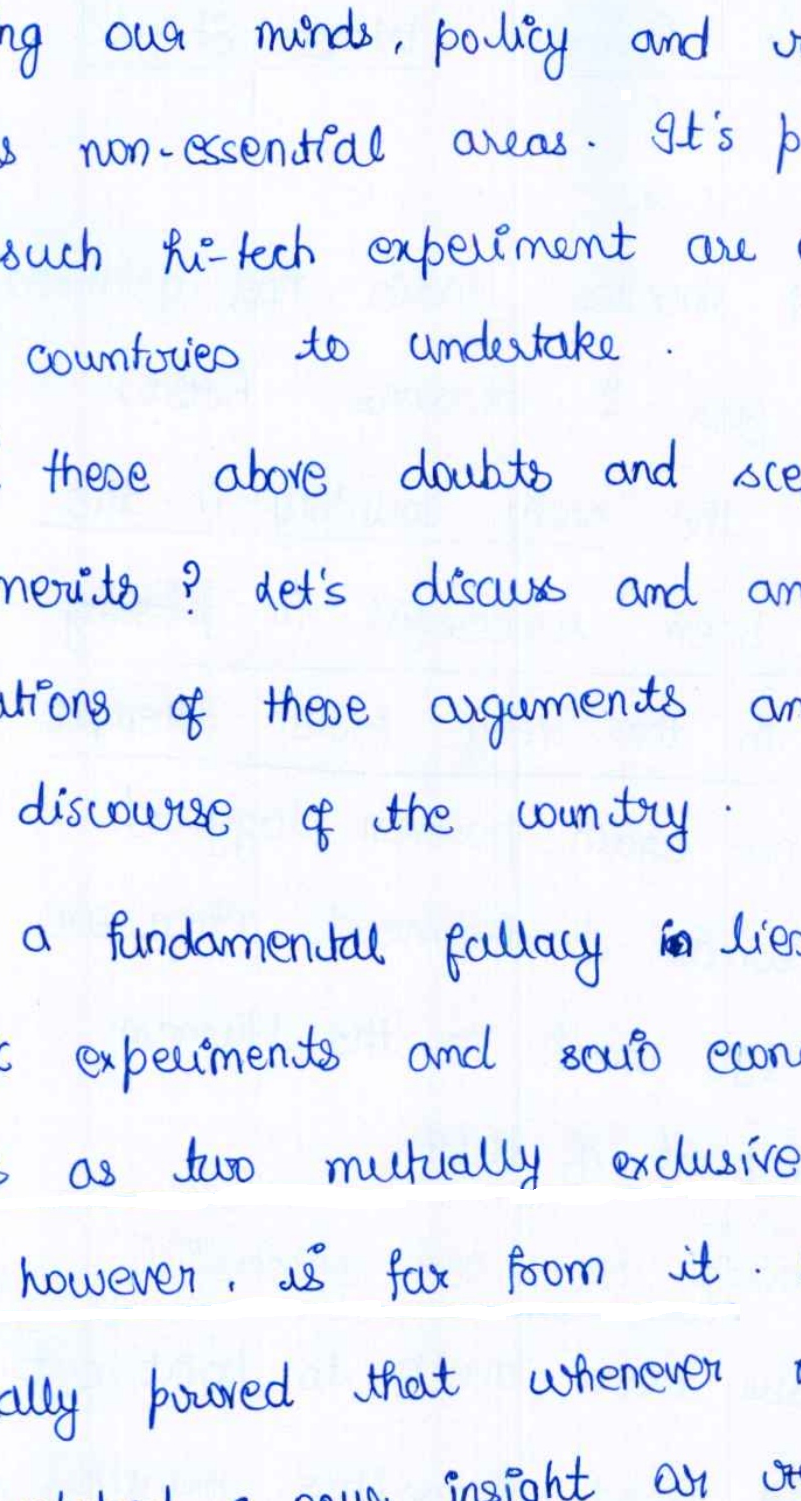 ng our minds, policy and
s non-essential areas. It's p
such hi-tech experiment are
countries to undertake.
these above doubts and sce
merits? Let's discuss and an
ations of these arguments an
discourse of the country.
a fundamental fallacy lies
experiments and socio econ
as two mutually exclusive
however, is far from it
ally proved that whenever
insight or